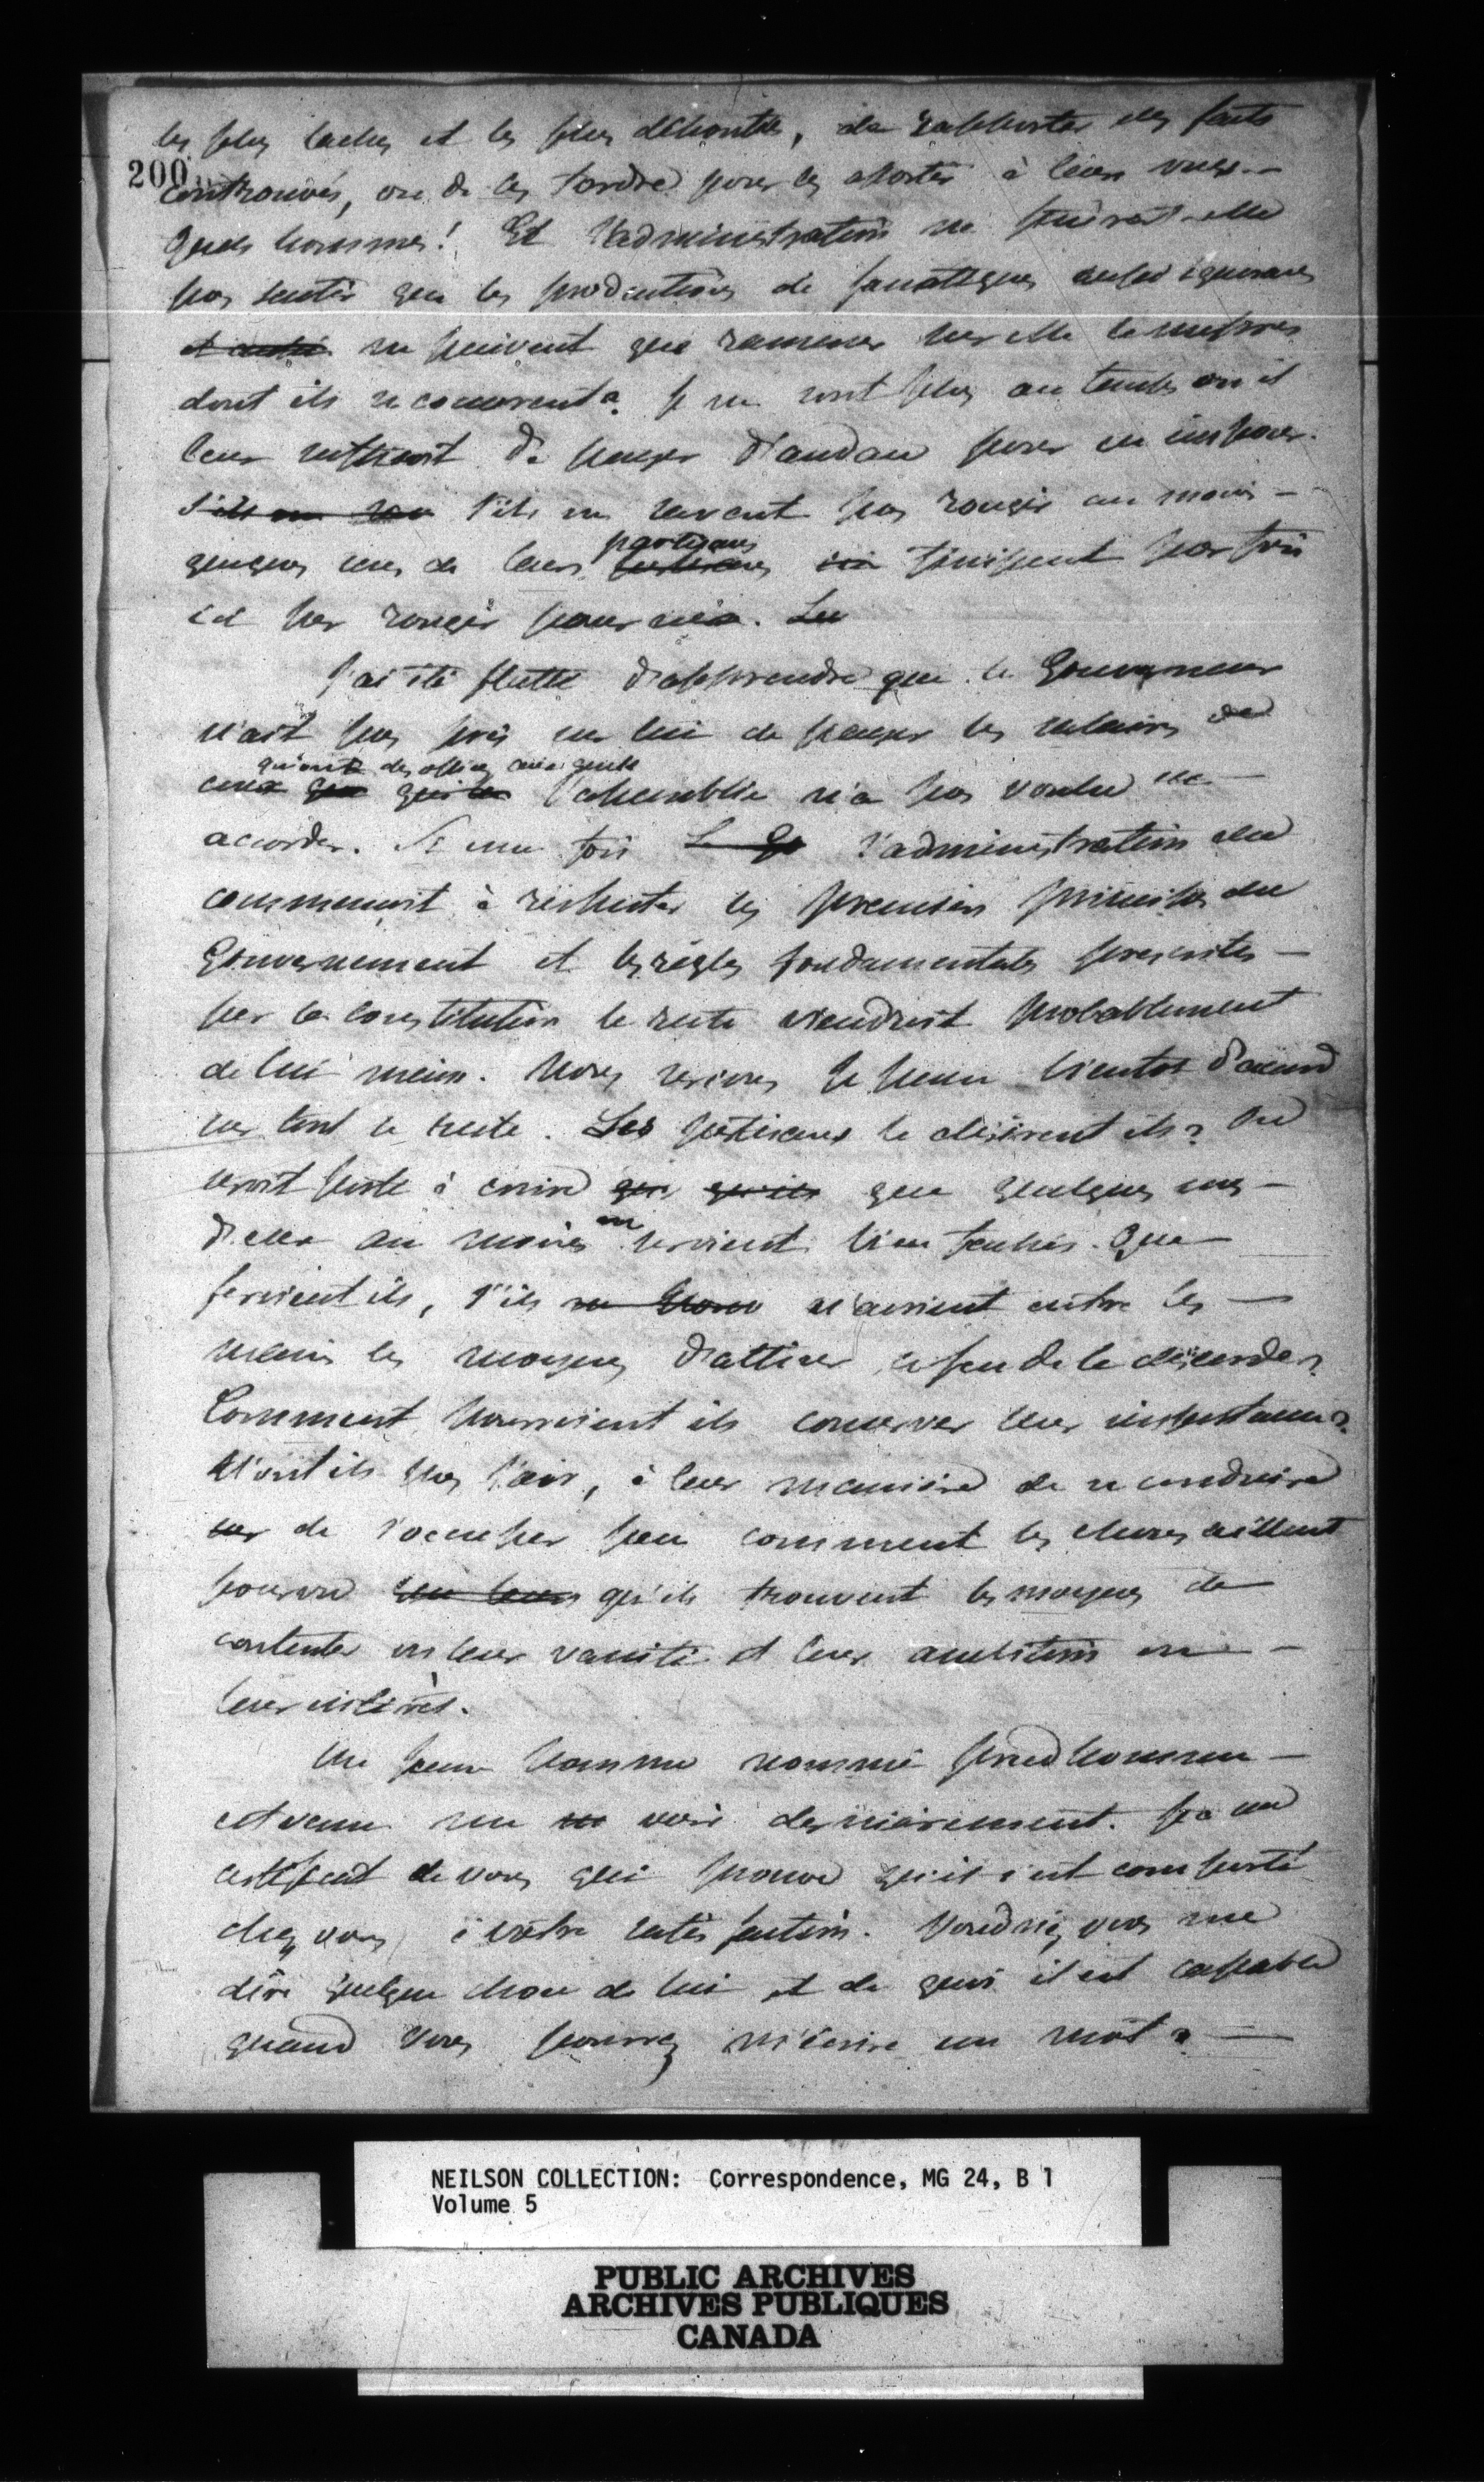 les plus laches et les plus déhontés, de rapporter des faits
200
controuvés, ou de les tordre pour les adapter à leurs vues. —
Quels hommes! Et l'administration ne
pas sentir que les productions de fanatiques aussi ignorans
et aussi ne peuvent que ramener sur elle le mépris
dont ils se couvrent? Ils ne sont plus au temps où il
leur suffisoit de payer d'audace pour en imposer.
S'ils ne sav S'ils ne savent pas rougir au moins —
quelques uns de leurs partisans finissent par fois
ici par rougir pour eux. Les
J'ai été flatté d'apprendre que le Gouverneur
n'ait pas pris sur lui de payer les salaires de
qu'ont des offices auxquels
ceux que qui l'assemblée n'a pas voulu en —
accorder. Si une fois Le Go l'administration
commençoit à respecter les premiers principes du
Gouvernement et les règles fondamentales prescrites —
par la constitution le reste viendroit probablement
de lui même. Nous serions je pense bientot d'accord
sur tout le reste. Les partisans le désirent ils? On
seroit porté à croire que qu'ils que quelques uns —
d'eux au moins en seroient bien fachés. Que —
feroient ils, s'ils ne n'avoient entre les —
mains les moyens d'attiser le feu de la discorde?
Comment pourroient ils conserver leur importance?
N'ont ils pas l'air, à leur manière de se conduire
de s'occuper peu comment les choses aillent
pourvu que leurs qu'ils trouvent les moyens de
contenter ou leur vanité et leur ambition ou —
leur intérêt.
Un jeune homme nommé Prudhomme —
est venu me voir dernièrement. Il a un
certificat de vous qui prouve qu'il s'est comporté
chez vous à votre satisfaction. Voudriez vous me
dire quelque chose de lui et de quoi il est capable
quand vous pourrez m'écrire un mot? —
NEILSON COLLECTION: Correspondence, MG 24, B 1
Volume 5
PUBLIC ARCHIVES
ARCHIVES PUBLIQUES
CANADA